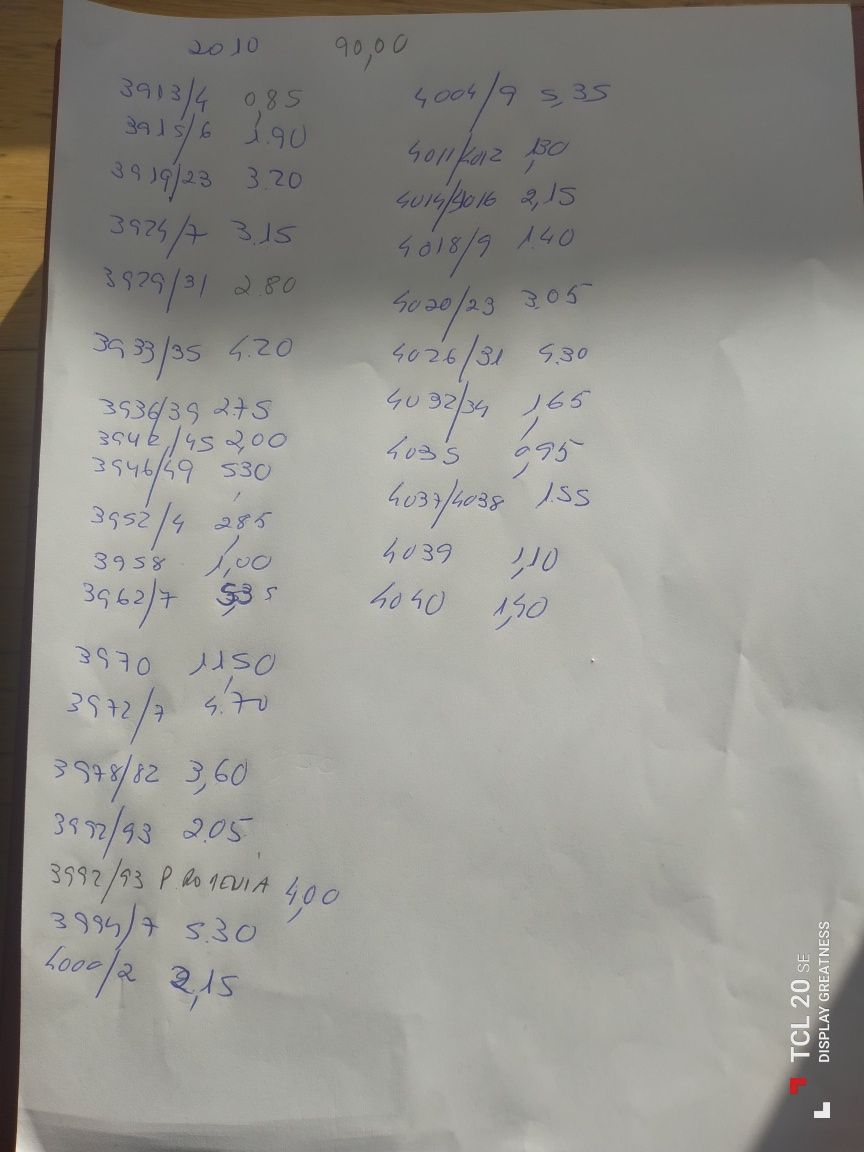 2010 90,00
3913/4 0,85
3915/6 1.90
3919/23 3.20
3924/7 3.15
3929/31 2.80
3933/35 4.20
3936/39 2.75
3942/45 2,00
3946/49 5,30
3952/4 2,85
3958 1,00
3962/7 5,35
3970 11,50
3972/7 4.70
3978/82 3,60
3992/93 2.05
3992/93 P. 4,00
3994/7 5.30
4000/2 2,15
4004/9 5,35
4011/4012 1,30
4014/4016 2,15
4018/9 1.40
4020/23 3.05
4026/31 4.30
4032/34 1,65
4035 0,95
4037/4038 1.55
4039 1,10
4040 1,40
TCL 20 SE
DISPLAY GREATNESS